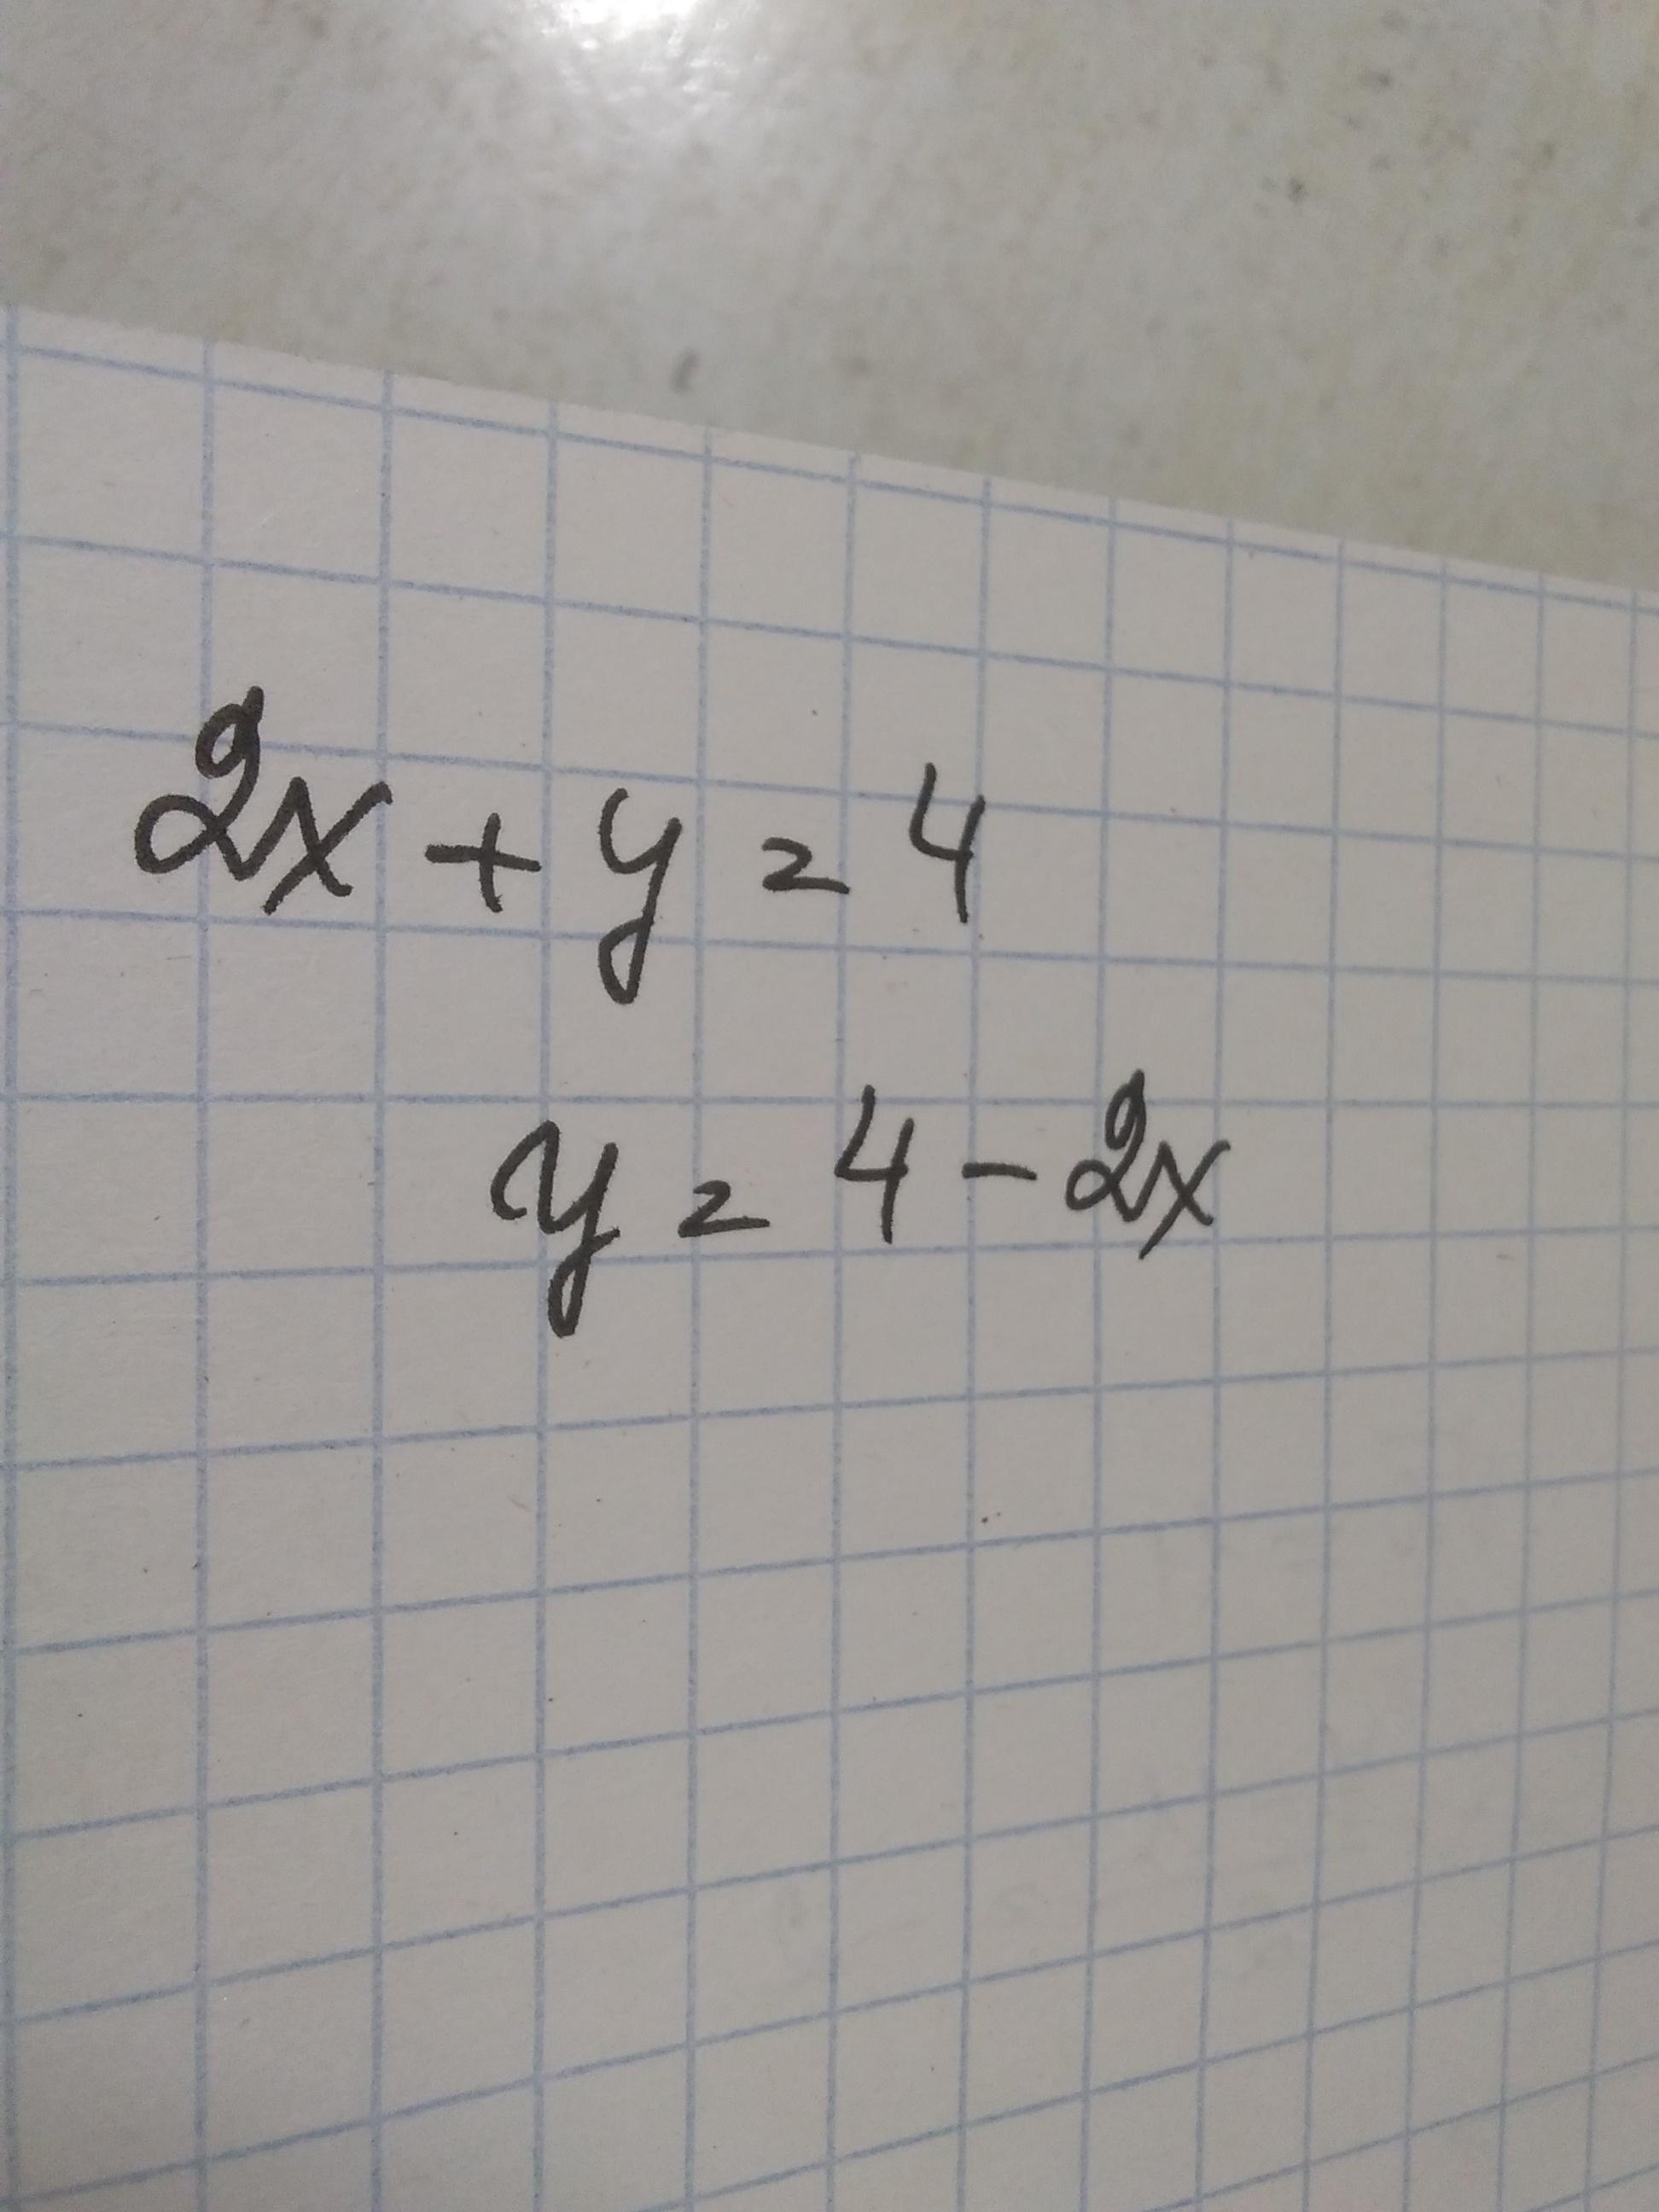 2x + y = 4
y = 4 - 2x